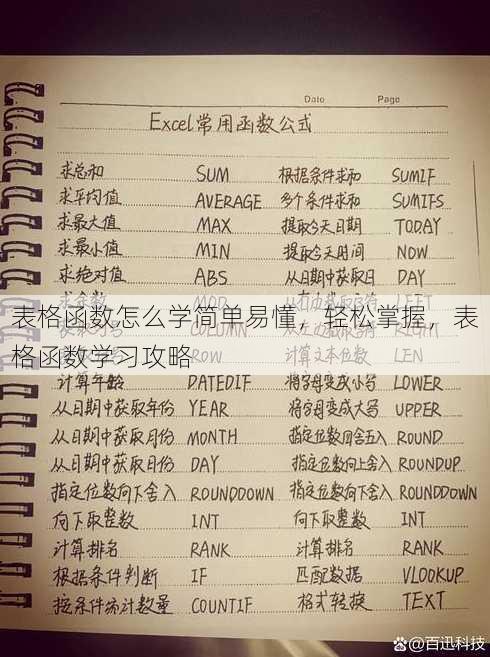 Date Page
Excel常用函数公式
求总和 SUM 根据条件求和 SUMIF
求平均值 AVERAGE 多个条件求和 SUMIFS
求最大值 MAX 提取今天日期 TODAY
求最小值 MIN 提取今天时间 NOW
求绝对值 ABS 从日期中获取日 DAY
表格函数怎么学简单易懂，轻松掌握，表
格函数学习攻略
计算年龄 DATEDIF 将字母变成小写 LOWER
从日期中获取年份 YEAR 将字母变成大写 UPPER
从日期中获取月份 MONTH 指定位数四舍五入 ROUND
从日期中获取日份 DAY 指定位数向上舍入 ROUNDUP
指定位数向下舍入 ROUNDDOWN 指定位数向下舍入 ROUNDDOWN
向下取整数 INT 向下取整数 INT
计算排名 RANK 计算排名 RANK
根据条件判断 IF 匹配数据 VLOOKUP
按条件统计数量 COUNTIF 格式转换 TEXT
@百迅科技